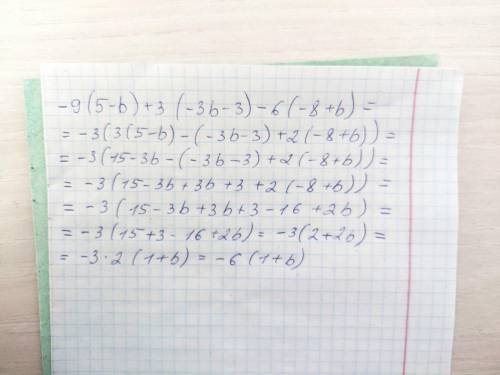 -9(5-b)+3(-3b-3)-6(-8+b)=
=-3(3(5-b)-(-3b-3)+2(-8+b))=
=-3(15-3b-(-3b-3)+2(-8+b))=
=-3(15-3b+3b+3+2(-8+b))=
=-3(15-3b+3b+3-16+2b)=
=-3(15+3-16+2b)=-3(2+2b)=
=-3·2(1+b)=-6(1+b)